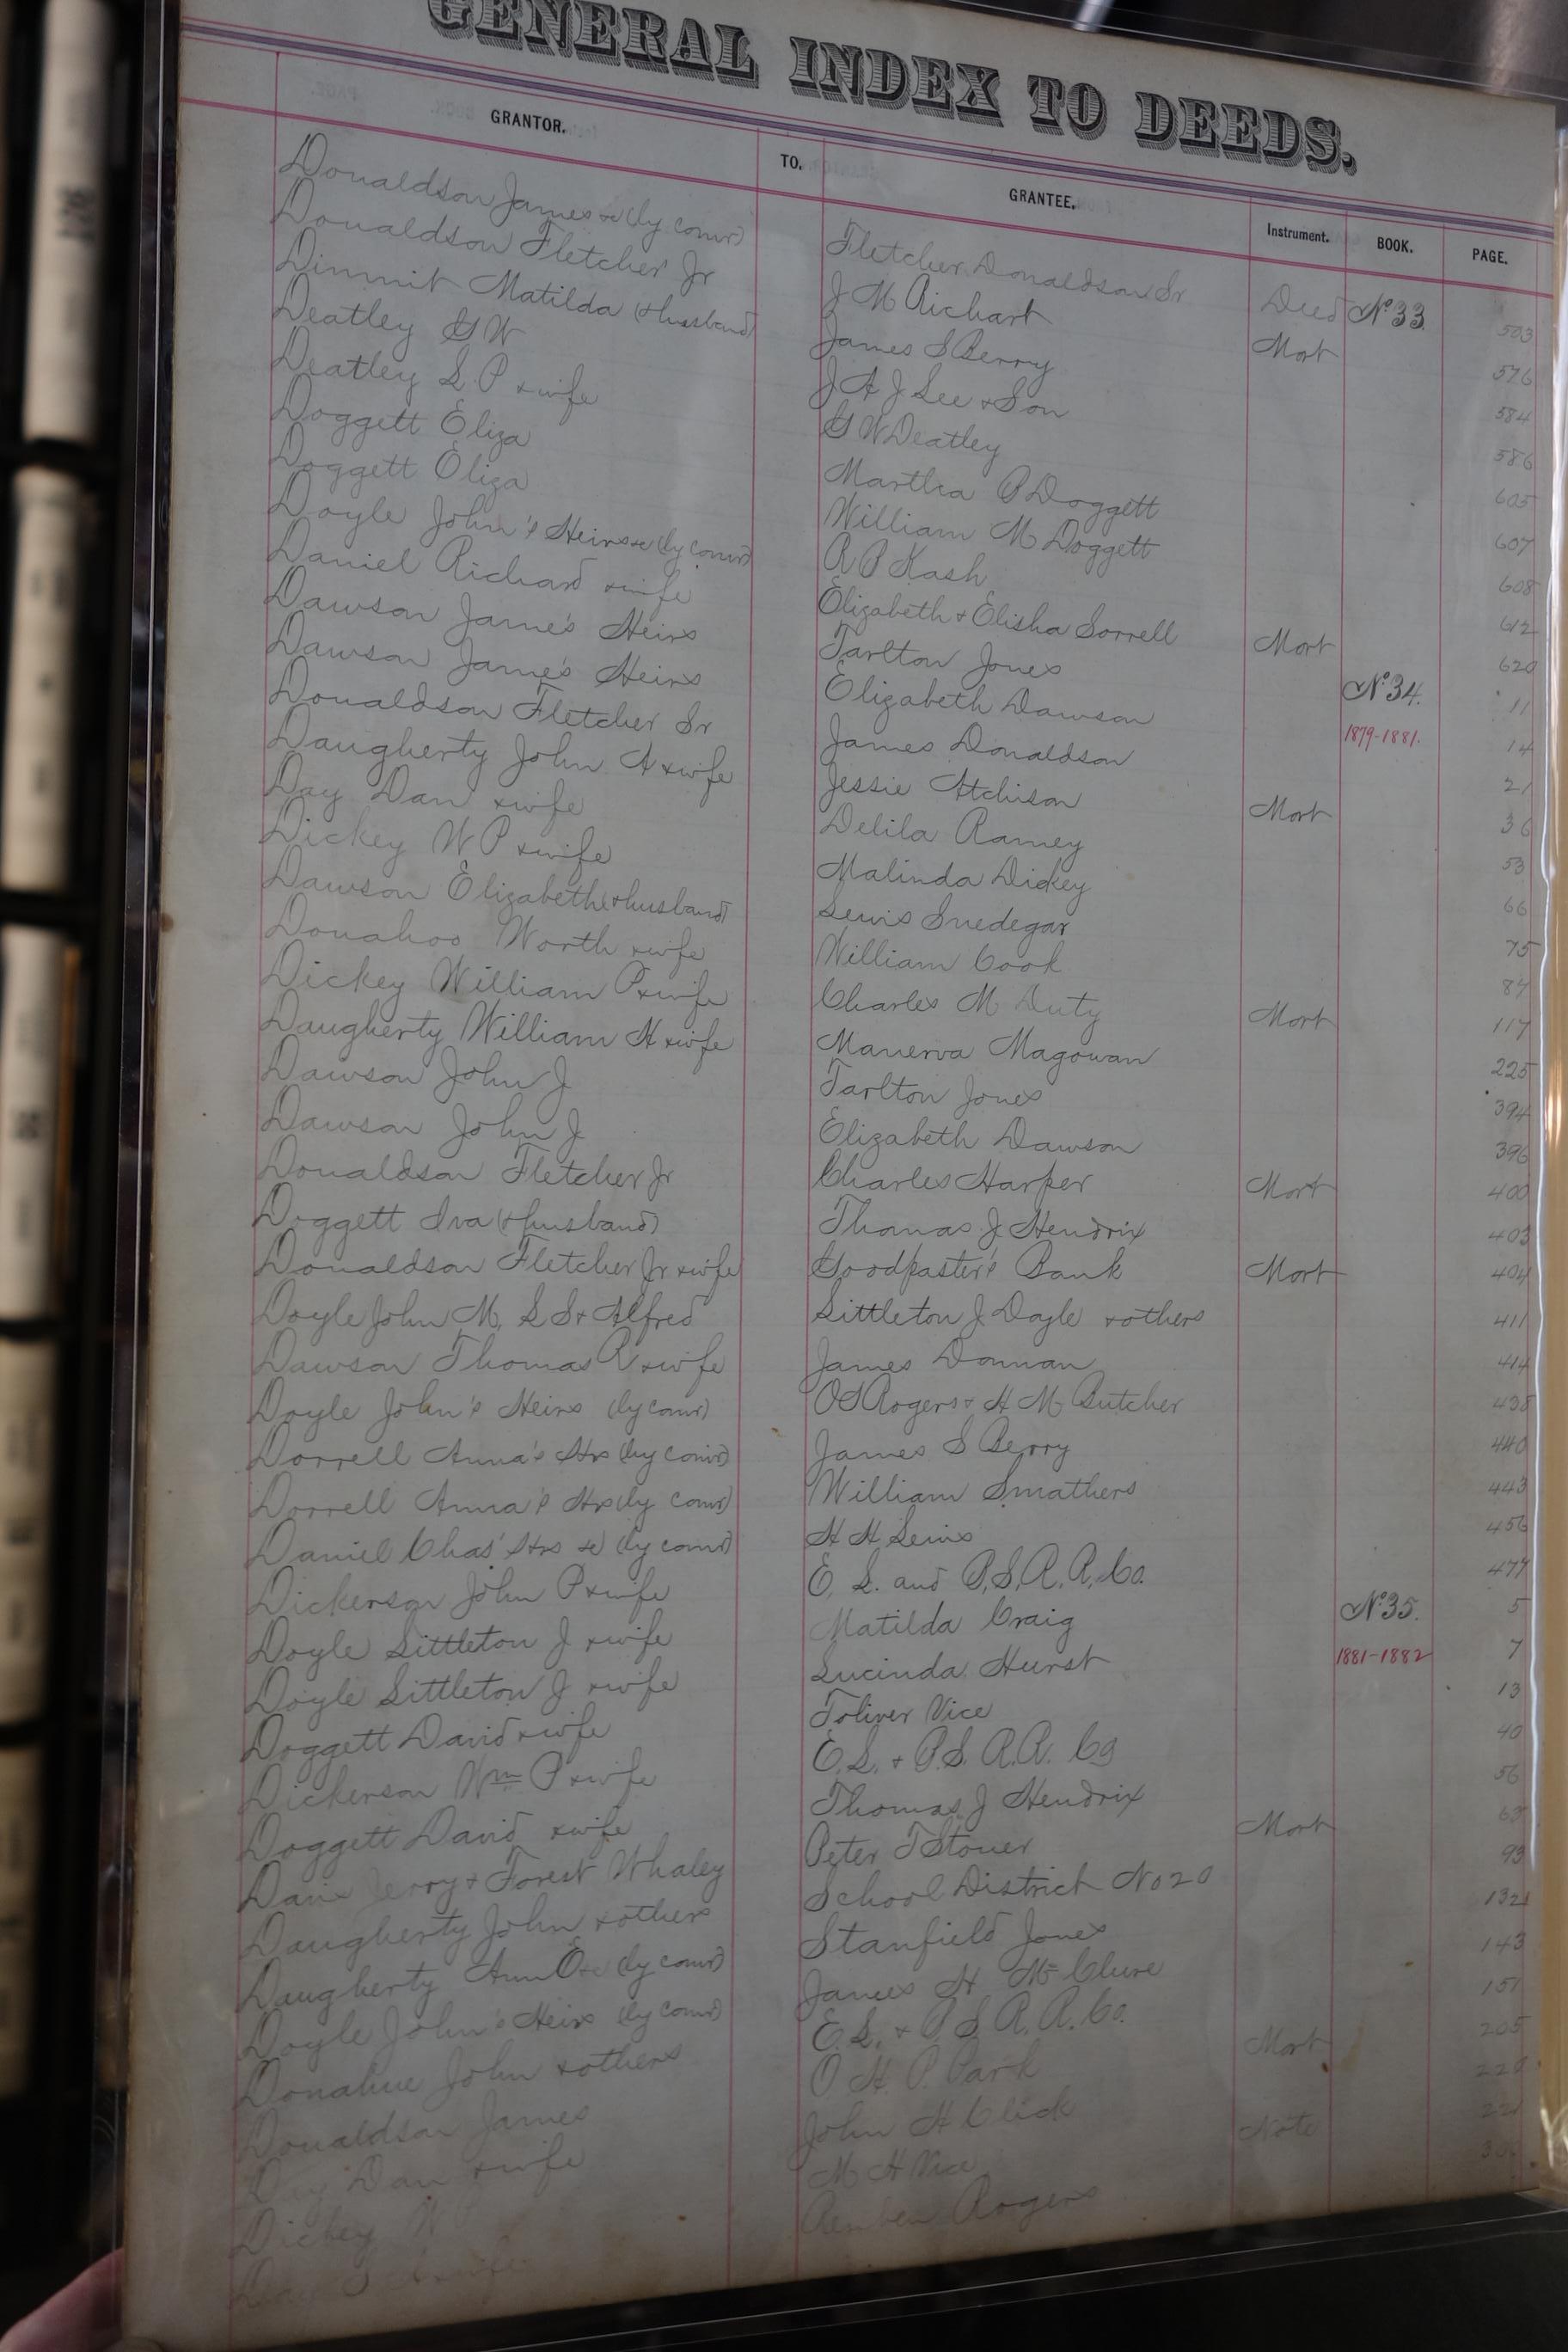 GENERAL INDEX TO DEEDS.
GRANTOR. TO. GRANTEE. Instrument. BOOK. PAGE.
Donaldson James &c (by comr) Fletcher Donaldson Sr Deed No 33. 503
Donaldson Fletcher Jr J M Richart Mort 576
Dimmit Matilda (&husband) James S Berry 584
Deatley G W J A J Lee & Son 586
Deatley L P & wife G W Deatley 605
Doggett Eliza Martha P Doggett 607
Doggett Eliza William M Doggett 608
Doyle John's Heirs &c (by comr) R P Kash 612
Daniel Richard & wife Elizabeth & Elisha Sorrell Mort 620
Dawson James's Heirs Tarlton Jones No 34. 11
Dawson James's Heirs Elizabeth Dawson 1879-1881. 14
Donaldson Fletcher Sr James Donaldson 21
Daugherty John A & wife Jessie Atchison Mort 36
Day Dan & wife Delila Ramey 53
Dickey W P & wife Malinda Dickey 66
Dawson Elizabeth (&husband) Lewis Snedegar 75
Donahoo Worth & wife William Cook 87
Dickey William P & wife Charles M Duty Mort 117
Daugherty William H & wife Manerva Magowan 225
Dawson John J Tarlton Jones 394
Dawson John J Elizabeth Dawson 396
Donaldson Fletcher Jr Charles Harper Mort 400
Doggett Iva (&husband) Thomas J Hendrix 403
Donaldson Fletcher Jr & wife Goodpaster's Bank Mort 404
Doyle John M, L S & Alfred Littleton J Doyle & others 411
Dawson Thomas R & wife James Donnan 414
Doyle John's Heirs (by comr) O S Rogers & H M Butcher 438
Dorrell Anna's Hrs (by comr) James S Berry 440
Dorrell Anna's Hrs (by comr) William Smathers 443
Daniel Chas' Hrs &c (by comr) H H Lewis 456
Dickerson John P & wife E. L. and B. S. R. R. Co. 477
Doyle Littleton J & wife Matilda Craig No 35. 5
Doyle Littleton J & wife Lucinda Hurst 1881-1882 7
Doggett David & wife Toliver Vice 13
Dickerson Wm P & wife E. L. & B. S. R. R. Co 40
Doggett David & wife Thomas J Hendrix 56
Davis Jerry & Forest Whaley Peter T Stoner Mort 63
Daugherty John & others School District No 20 93
Daugherty Ann E &c (by comr) Stanfield Jones 132
Doyle John's Heirs (by comr) James H McClure 143
Donahue John & others E. L. & B. S. R. R. Co. 151
Donaldson James O H P. Park Mort 205
Day Dan & wife John H Click 220
Dickey W P M H Vice Note 221
Reuben Rogers